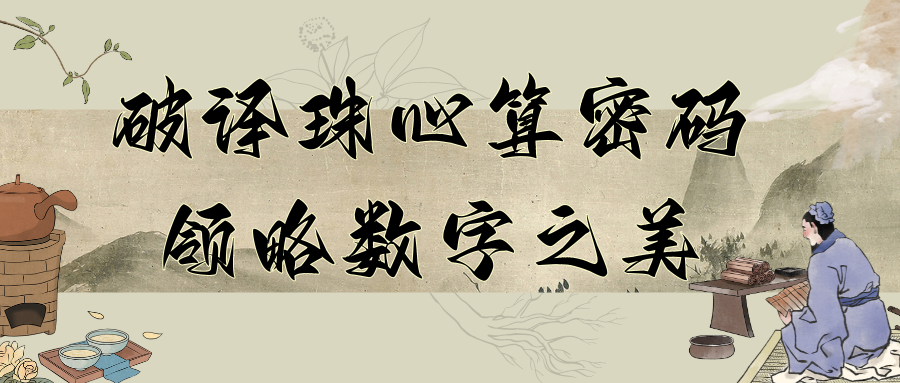 破译珠心算密码
领略数字之美